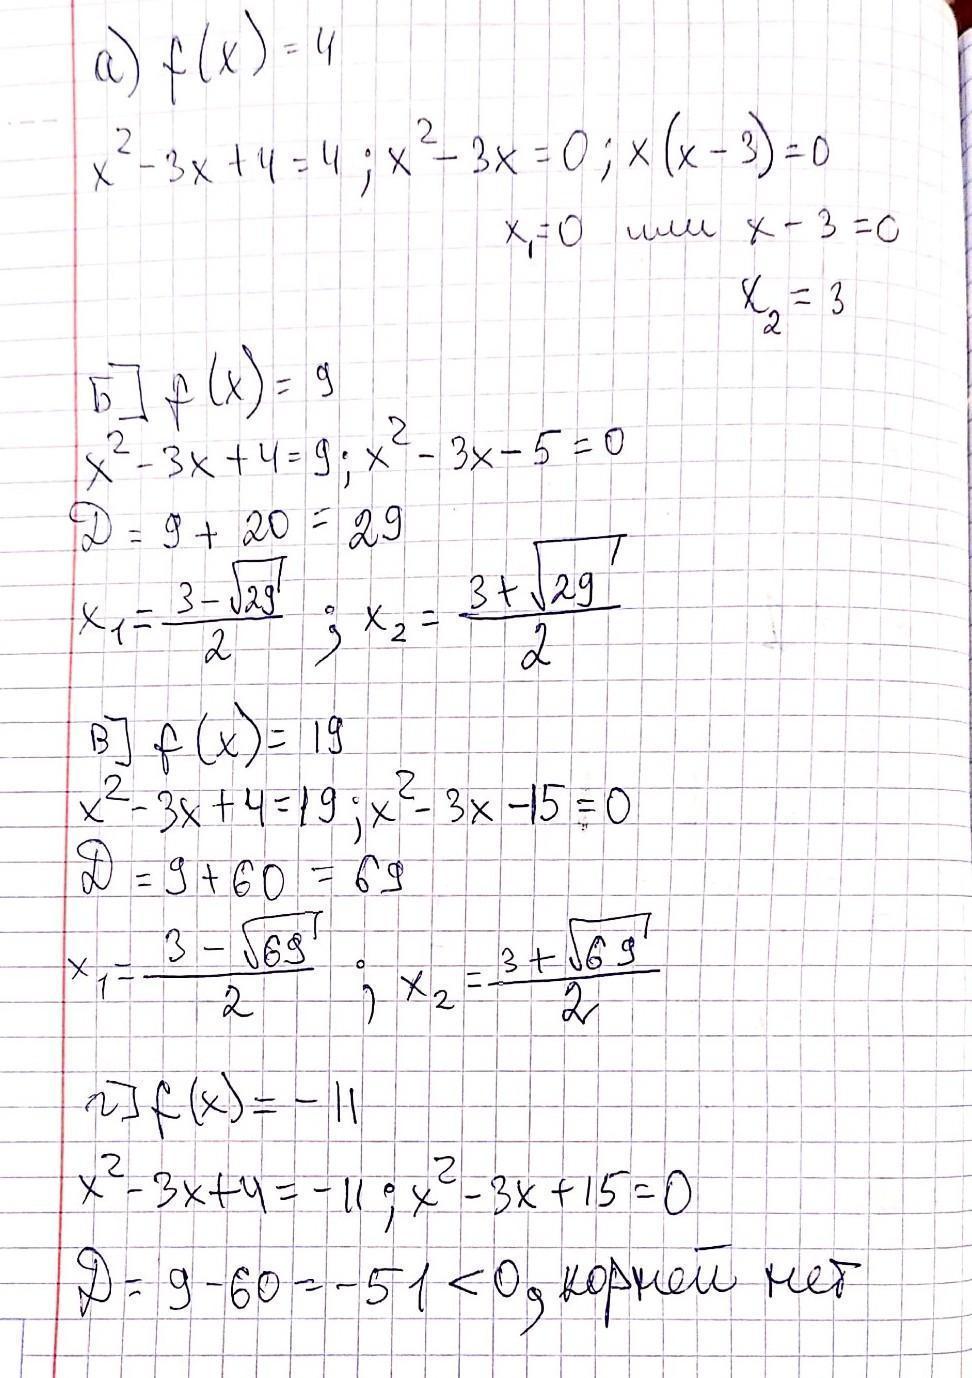 а) f(x) = 4
x² - 3x + 4 = 4; x² - 3x = 0; x(x - 3) = 0
x₁ = 0 или x - 3 = 0
x₂ = 3
Б] f(x) = 9
x² - 3x + 4 = 9; x² - 3x - 5 = 0
Д = 9 + 20 = 29
x₁ = (3 - √29)/2 ; x₂ = (3 + √29)/2
в] f(x) = 19
x² - 3x + 4 = 19; x² - 3x - 15 = 0
Д = 9 + 60 = 69
x₁ = (3 - √69)/2 ; x₂ = (3 + √69)/2
г] f(x) = - 11
x² - 3x + 4 = -11; x² - 3x + 15 = 0
Д = 9 - 60 = -51 < 0, корней нет